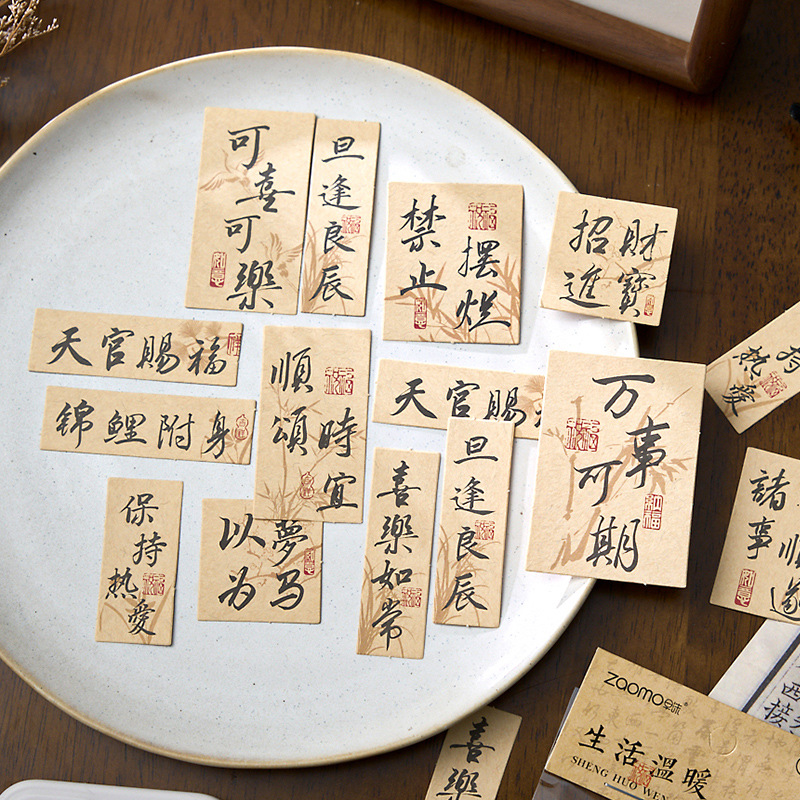 可喜可樂
旦逢良辰
禁止
摆烂
招財
進寶
天官賜福
錦鲤附身
順頌
時宜
天官賜
喜樂如常
旦逢良辰
万事可期
持
热愛
保持
热愛
以夢
为马
諸事
順遂
喜樂
zaomo
生活溫暖
SHENG HUO WEN
西
接